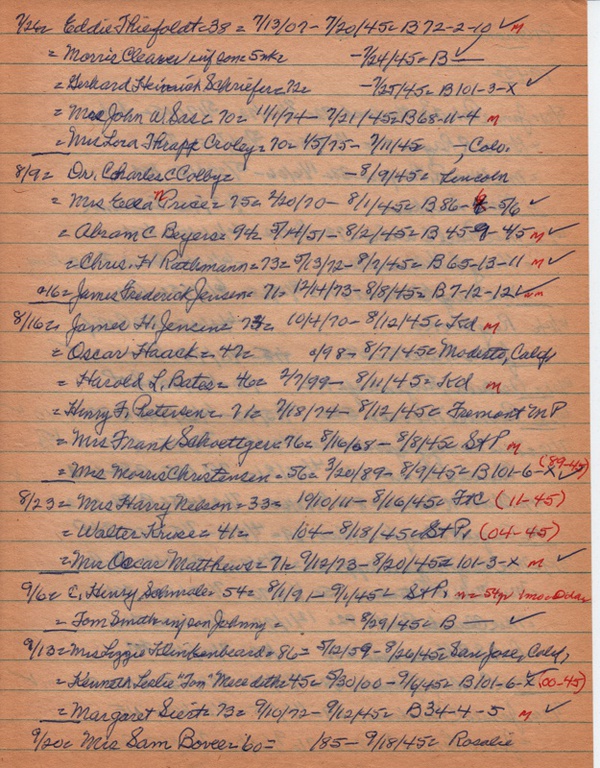 7/26 = Eddie Thiefoldt = 38 = 7/13/07 - 7/20/45 = B 72-2-10 ✓ m
= Morris Cleaver inf son = 5 wk = - 7/24/45 = B —
= Gerhard Heinrich Schriefer = 72 = - 7/25/45 = B 101-3-X ✓
= Mrs John W. Sass = 70 = 11/1/74 - 7/21/45 = B 68-11-4 m
= Mrs Lora Thrapp Croley = 70 = 1/5/75 - 7/11/45 -, Colo.
8/9 = Dr. Charles C Colby = - 8/9/45 = Lincoln
= Mrs Ella Price = 75 = 2/20/70 - 8/1/45 = B 86- -5/6 ✓
= Abram C Beyers = 94 = 5/14/51 - 8/2/45 = B 45-9-4/5 m ✓
= Chris. H Rathmann = 73 = 5/13/72 - 8/7/45 = B 65-13-11 m ✓
8/16 = James Frederick Jensen = 71 = 12/14/73 - 8/8/45 = B 7-12-12 ✓ m
8/16 = James H. Jensine = 73 = 10/4/70 - 8/12/45 = Kd m
= Oscar Haack = 47 = /98 - 8/7/45 = Modesto, Calif,
= Harold L. Bates = 46 = 2/7/99 - 8/11/45 = Kd m
= Henry F. Petersen = 71 = 7/18/74 - 8/12/45 = Fremont MP
= Mrs Frank Schoettger = 76 = 8/16/68 - 8/8/45 = St P m
= Mrs Morris Christensen = 56 = 3/20/89 - 8/9/45 = B 101-6-X ✓ (89-45)
8/23 = Mrs Harry Nelson = 33 = 10/10/11 - 8/16/45 = FtC (11-45)
= Walter Kruse = 41 = /04 - 8/18/45 = St P, (04-45)
= Mrs Oscar Matthews = 71 = 9/12/73 - 8/20/45 = 101-3-X m ✓
9/6 = C. Henry Schmale = 54 = 8/1/91 - 9/1/45 = St P, m = 54 yr 1 mo 0 da
= Tom Smith inf son Johnny = - 8/29/45 = B — ✓
9/13 = Mrs Lizzie Klinkenbeard = 86 = 5/12/59 - 8/26/45 = San Jose, Calif,
= Kenneth Leslie "Tom" Meredith = 45 = 5/30/00 - 9/6/45 = B 101-6-X (00-45)
= Margaret Siert = 73 = 9/10/72 - 9/12/45 = B 34-4-5 m ✓
9/20 = Mrs Sam Bover = 60 = /85 - 9/18/45 = Rosalie